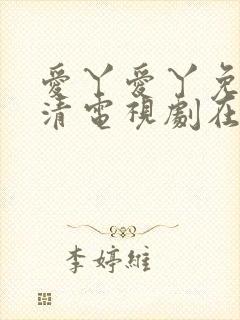 愛丫愛丫免
清電視劇在
李婷維